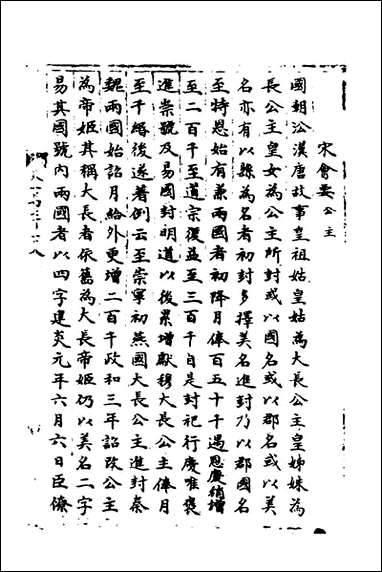 宋會要 公主
國朝沿漢唐故事皇祖姑皇姑為大長公主皇姊妹為
長公主皇女為公主所封或以國名或以郡名或以美
名亦有以縣為名者初封多擇美名進封乃以郡國名
至特恩始有兼兩國者初降月俸百五十千遇恩慶稍增
至二百千至道宗復益至三百千自是封祀行慶唯褒
進崇號及易國封明道以後累增獻穆大長公主俸月
至千緡後遂著例云至崇寧初燕國大長公主進封秦
魏兩國始詔月給外更增二百千政和三年詔改公主
為帝姬其稱大長者依舊為大長帝姬仍以美名二字
易其國號內兩國者以四字建炎元年六月六日臣僚